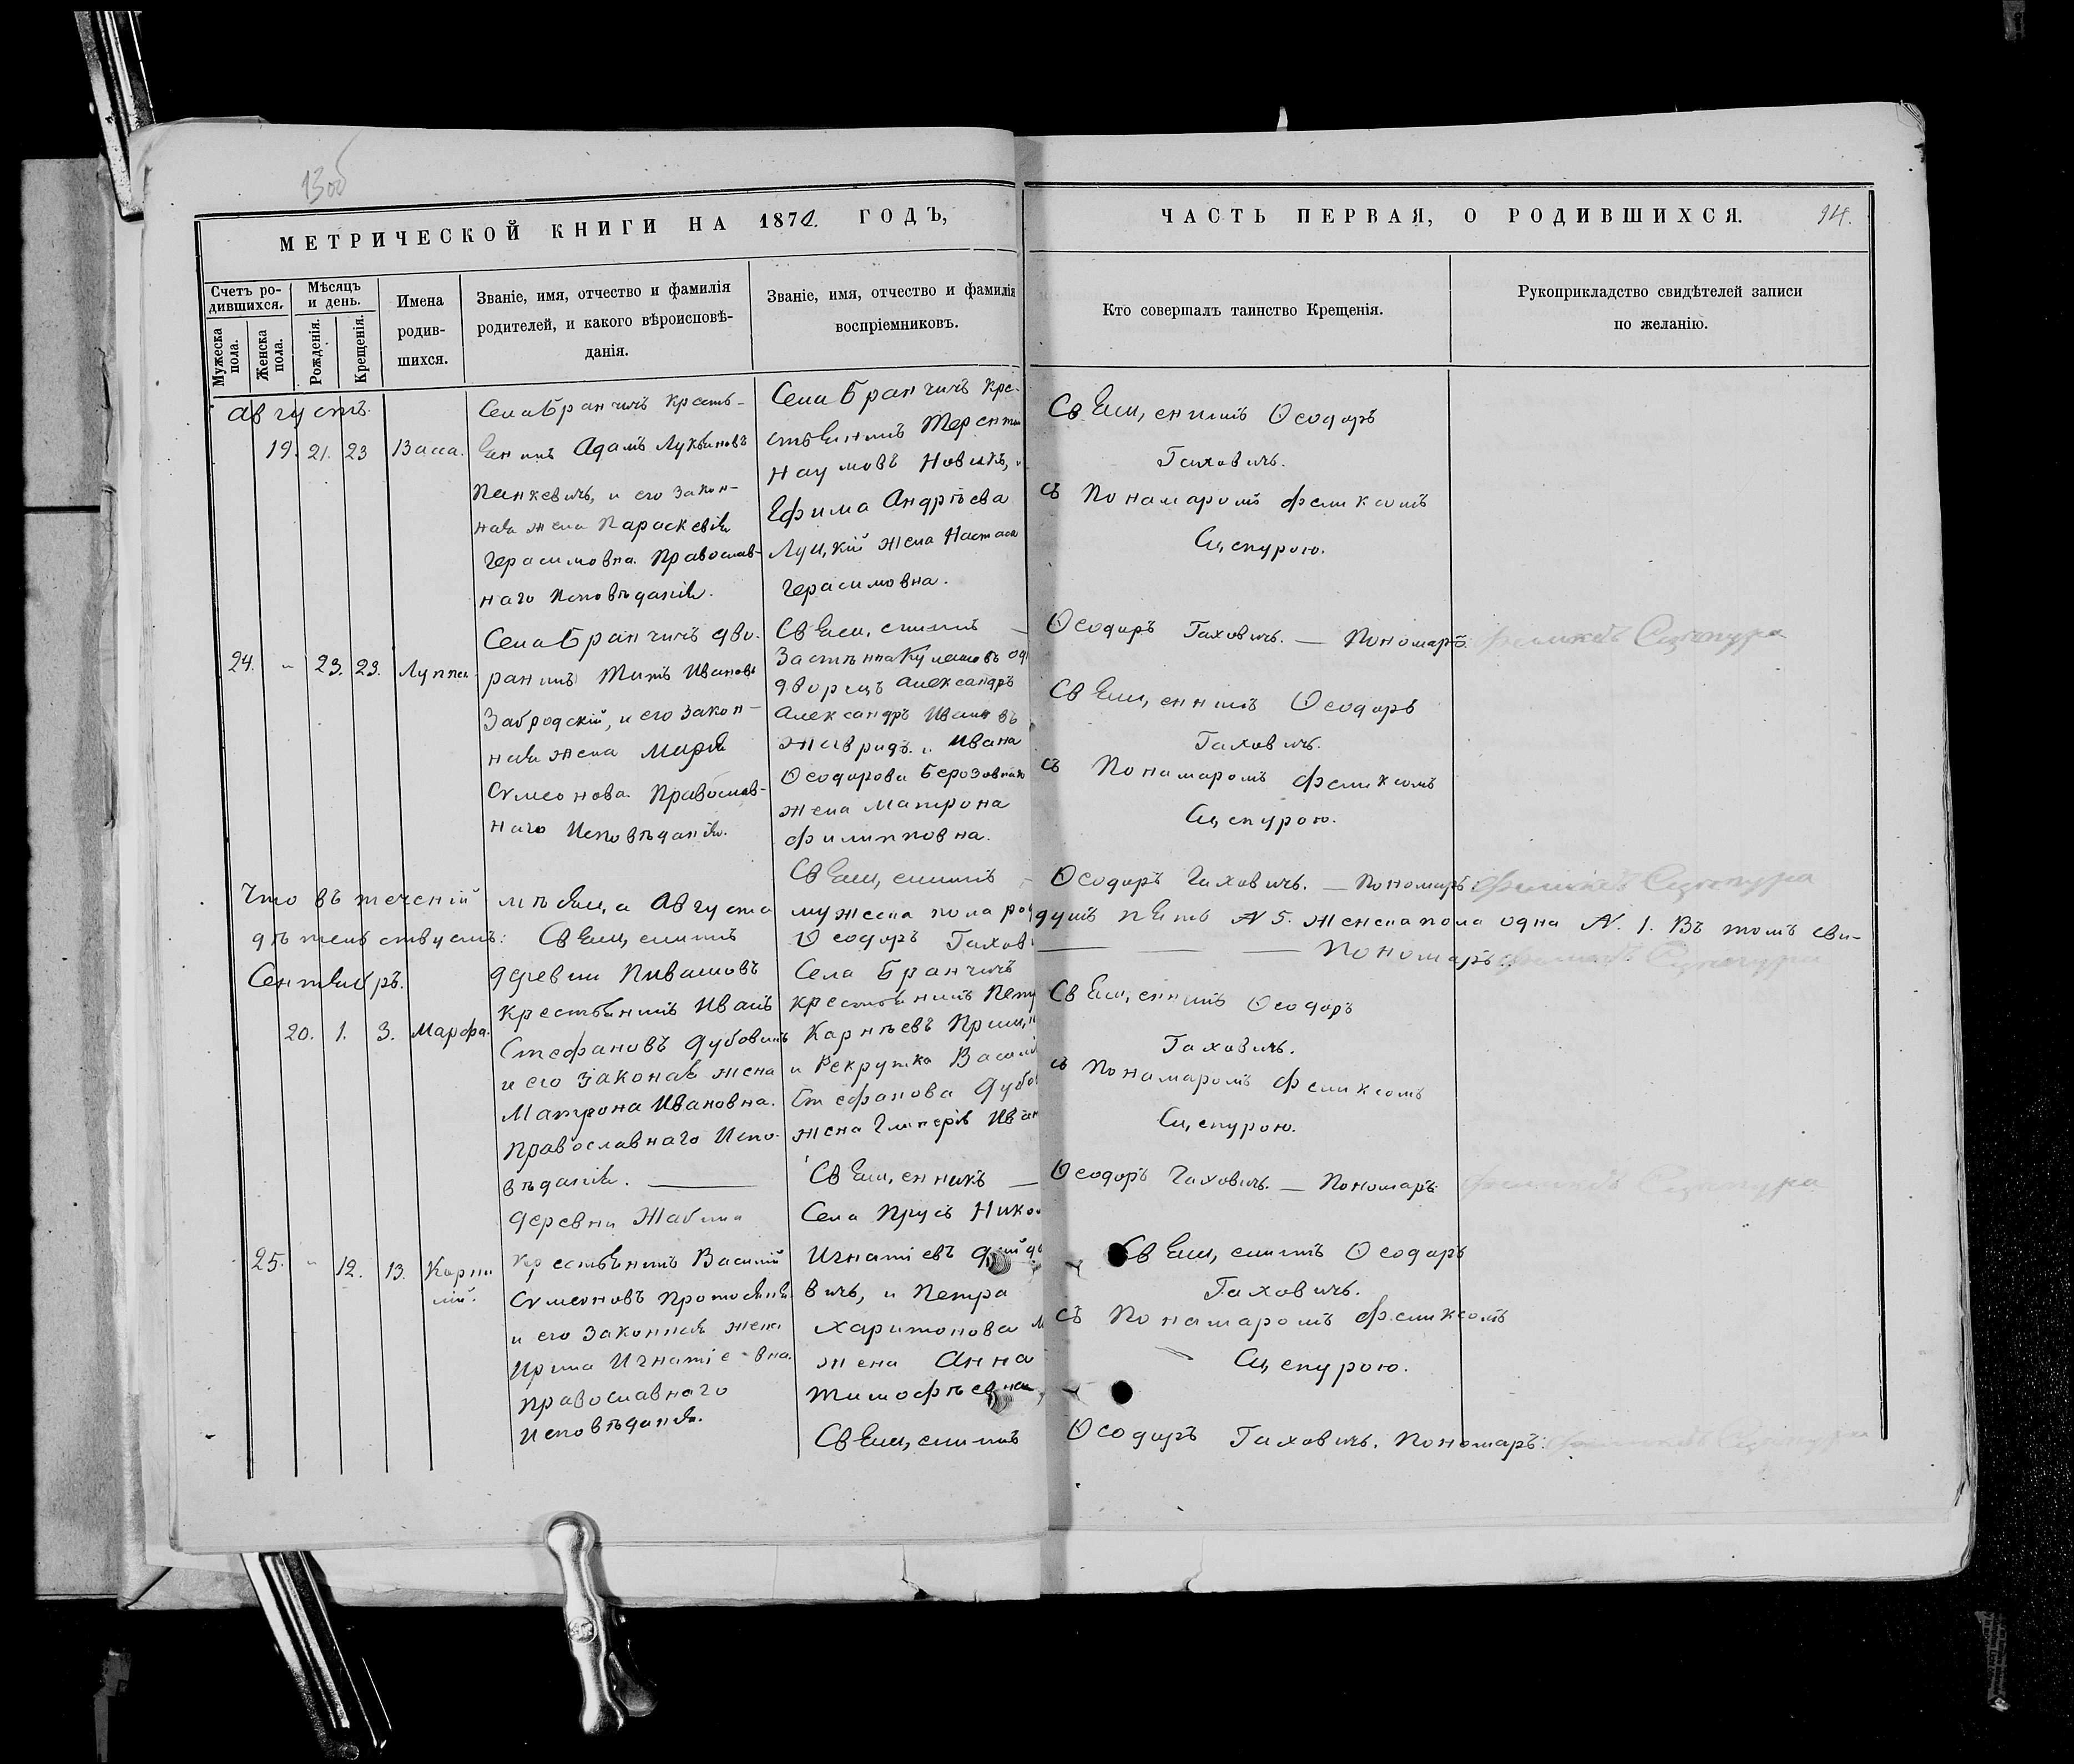 13об
МЕТРИЧЕСКОЙ КНИГИ НА 187 ГОДЪ,
ЧАСТЬ ПЕРВАЯ, О РОДИВШИХСЯ.
14.
Счетъ ро-
дившихся.
Мужеска пола.
Женска пола.
Мѣсяцъ
и день.
Рожденія.
Крещенія.
Имена
родив-
шихся.
Званіе, имя, отчество и фамилія
родителей, и какого вѣроисповѣ-
данія.
Званіе, имя, отчество и фамилія
воспріемниковъ.
Кто совершалъ таинство Крещенія.
Рукоприкладство свидѣтелей записи
по желанію.
Августъ.
19. 21. 23 Васса.
Села Бранчичъ кресть-
янинъ Адамъ Лукьяновъ
Панкевичъ, и его закон-
ная жена Параскевія
Герасимовна. Православ-
наго Исповѣданія.
Села Бранчичъ кре-
стьянинъ
Наумовъ Новикъ,
Ефима Андрѣева
Луцкій жена
Герасимовна.
Священникъ Ѳеодоръ
Гаховичъ.
съ Понамаромъ Феликсомъ
Сцепурою.
Священникъ —
Ѳеодоръ Гаховичъ. — Пономарь: Феликсъ Сцепура
24. " 23. 23. Луппа.
Села Бранчичъ дво-
ранинъ Титъ Ивановъ
Забродскій, и его закон-
ная жена Марія
Сумеонова. Православ-
наго Исповѣданія.
Застѣнка
дворецъ Александръ
Александръ
Ивана
Ѳеодорова
жена Матрона
Филипповна.
Священникъ Ѳеодоръ
Гаховичъ.
съ Понамаромъ Феликсомъ
Сцепурою.
Священникъ —
Ѳеодоръ Гаховичъ. — Пономарь: Феликсъ Сцепура
Что въ теченій мѣсяца Августа мужеска пола душъ пять № 5. женска пола одна №. 1. Въ томъ сви-
дѣтельствуемъ: Священникъ Ѳеодоръ — Пономарь: Феликсъ Сцепура
Сентябрь.
20. 1. 3. Марфа.
деревни Пивашовъ
крестьянинъ Иванъ
Стефановъ Дубовикъ
и его законая жена
Матрона Ивановна.
православнаго Испо-
вѣданія. —
Села Бранчичъ
крестьянинъ
Карнѣевъ
и Рекрутка
Стефанова
жена
Священникъ Ѳеодоръ
Гаховичъ.
съ Понамаромъ Феликсомъ
Сцепурою.
Священникъ —
Ѳеодоръ Гаховичъ. — Пономарь: Феликсъ Сцепура
25. " 12. 13. Корни
лій.
деревни
крестьянинъ Василій
Сумеоновъ
и его законная жена
Ирина Игнатіевна.
православнаго
Исповѣданія.
Села Прусъ
Игнатіевъ
вичъ, и Петра
Харитонова
жена Анна
Тимофѣевна
Священникъ Ѳеодоръ
Гаховичъ.
съ Понамаромъ Феликсомъ
Сцепурою.
Священникъ
Ѳеодоръ Гаховичъ. Пономарь: Феликсъ Сцепура